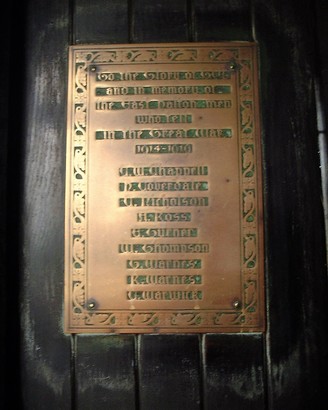 To the Glory of God
and in memory of
the East Dalton men
who fell
in the Great War
1914-1919
J. Nicholson
H. Ross
G. Turner
W. Thompson
G. Warnes
R. Warnes